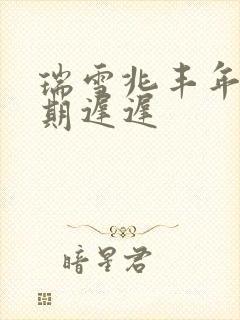 瑞雪兆丰年
期遲遲
暗星君